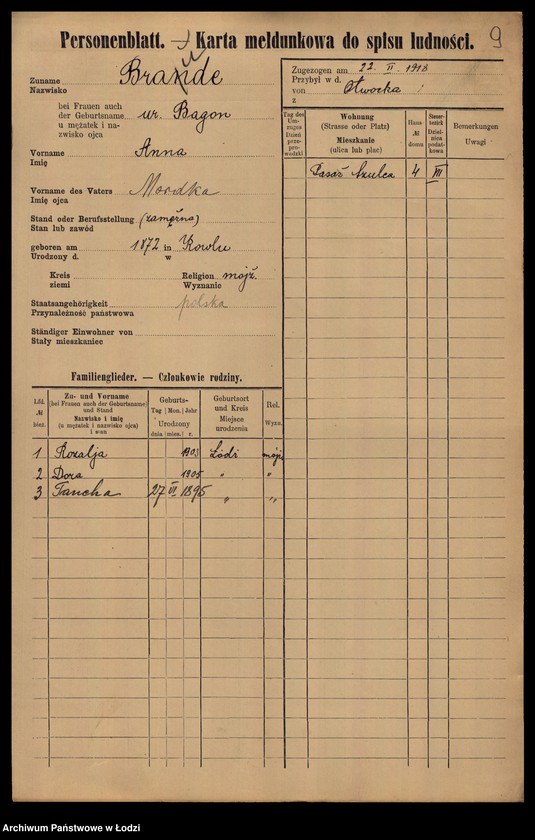 Personenblatt. — Karta meldunkowa do spisu ludności.
9
Zuname
Nazwisko
Brande
bei Frauen auch
der Geburtsname
u mężatek i na-
zwisko ojca
ur. Bagon
Vorname
Imię
Anna
Vorname des Vaters
Imię ojca
Mordka
Stand oder Berufsstellung
Stan lub zawód
(zamężna)
geboren am 1872 in Kowlu
Urodzony d. w
Kreis
ziemi
Religion mojż.
Wyznanie
Staatsangehörigkeit
Przynależność państwowa
polska
Ständiger Einwohner von
Stały mieszkaniec
Zugezogen am 22. II. 1918
Przybył w d.
von Otwocka
z
Tag des Um-zuges
Dzień prze-prowadzki
Wohnung
(Strasse oder Platz)
Mieszkanie
(ulica lub plac)
Haus-
№
domu
Steuer-bezirk
Dziel-nica podat-kowa
Bemerkungen
Uwagi
Pasaż Szulca 4 VII
Familienglieder. — Członkowie rodziny.
Lfd.
№
bież.
Zu- und Vorname
(bei Frauen auch der Geburtsname)
und Stand
Nazwisko i imię
(a mężatek i nazwisko ojca)
i stan
Geburts-
Tag Mon. Jahr
Urodzony
dnia mies. r.
Geburtsort
und Kreis
Miejsce
urodzenia
Rel.
Wyzn.
1 Rozalja 1903 Łódź mojż.
2 Dora 1905 " "
3 Fancha 27 VI 1895 " "
Archiwum Państwowe w Łodzi